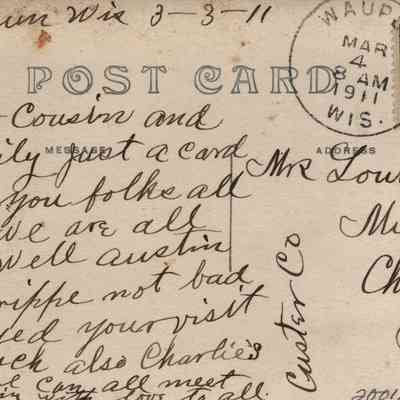 un Wis 3-3-11
WAUP
MAR
4
8 AM
1911
WIS.
POST CARD
Cousin and
MESSAGE
ily just a card
you folks all
we are all
well austin
rippe not bad
ed your visit
ck also Charlie's
can all meet
with love to all
ADDRESS
Mr Lou
Mi
Ch
Custer Co
2001